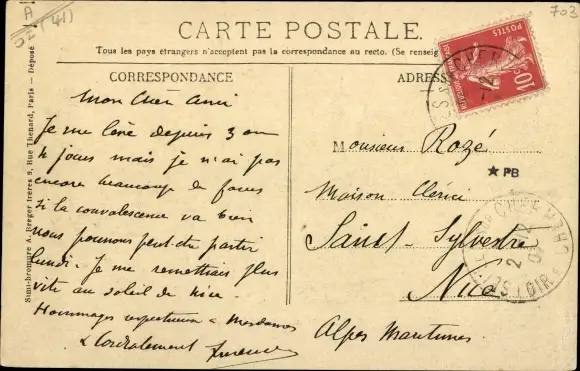 A
DN (41)
703
CARTE POSTALE.
Tous les pays étrangers n'acceptent pas la correspondance au recto. (Se renseig
CORRESPONDANCE
Mon Cher Ami
Je me lève depuis 3 ou
4 jours mais je n'ai pas
encore beaucoup de forces
Si la convalescence va bien
nous pourrons peut-être partir
lundi. Je me remettrais plus
vite au soleil de Nice.
Hommages respectueux à Mesdames
& Cordialement
ADRESS
Monsieur Rozé
PB
Maison Clérici
Saint-Sylvestre
Nice
Alpes Maritimes
10c
POSTES
Simi-bromure A. Breger frères 9, Rue Thenard, Paris — Déposé